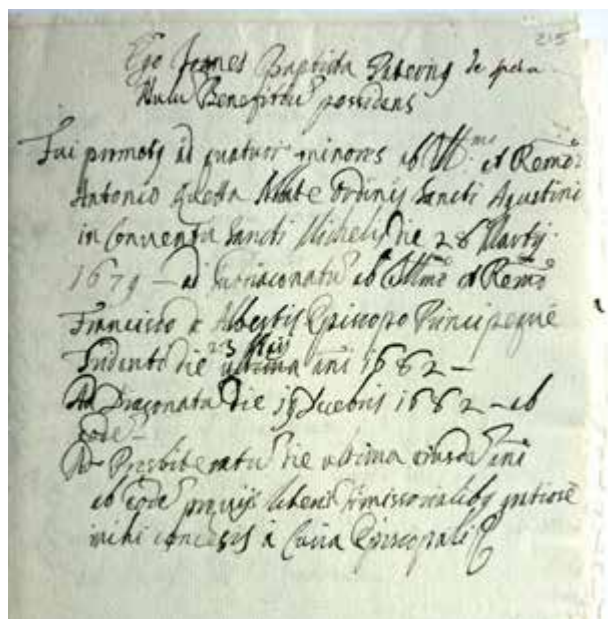 215
Ego Joannes Baptista Paternus de
Null Beneficiu possidens
Fui promotus ad quatuor minores ab Ill.mo et Remo
Antonio Abbate Ordinis Sancti Agustini
in Conventu Sancti Michelis die 28 Martij
1679 – ad Subdiaconatu ab Illmo et Remo
Francisco de Albertis Episcopo Principeque
Tridento die 23 ultima ani 1682 –
Ad Diaconatu die 19 Xcebris 1682 – ab
eode –
Ad Presbiteratu die ultima eiusde ani
ab eode previjs literis dimissorialibus
mihi concessis a Curia Episcopali